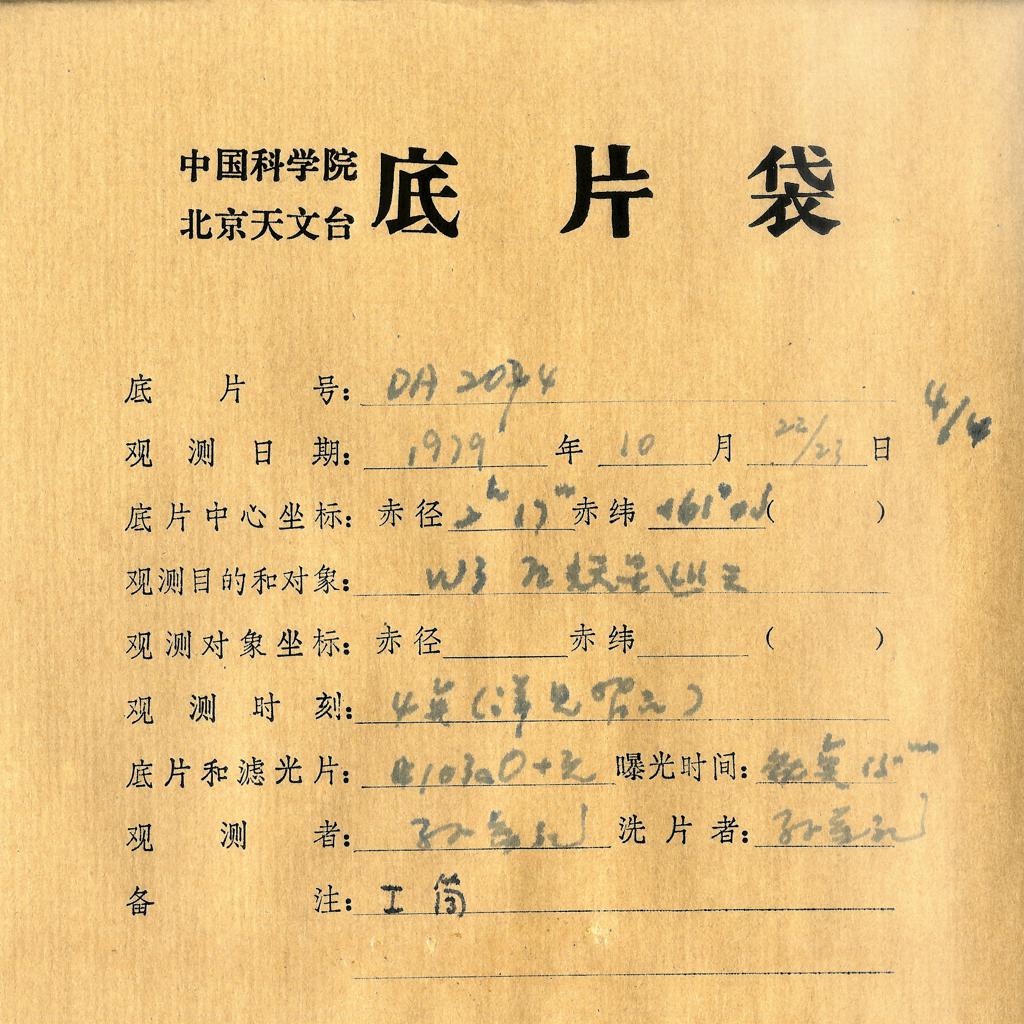 中国科学院
北京天文台
底片袋
底片号: DA 2074
4/4
观测日期: 1979年10月22/23日
底片中心坐标: 赤径 2h 17m 赤纬 +61° ( )
观测目的和对象: W3
观测对象坐标: 赤径 赤纬 ( )
观测时刻: 4 (详见
底片和滤光片: 103aO+无 曝光时间: 15m
观测者: 孙 洗片者: 孙
备注: 工 简